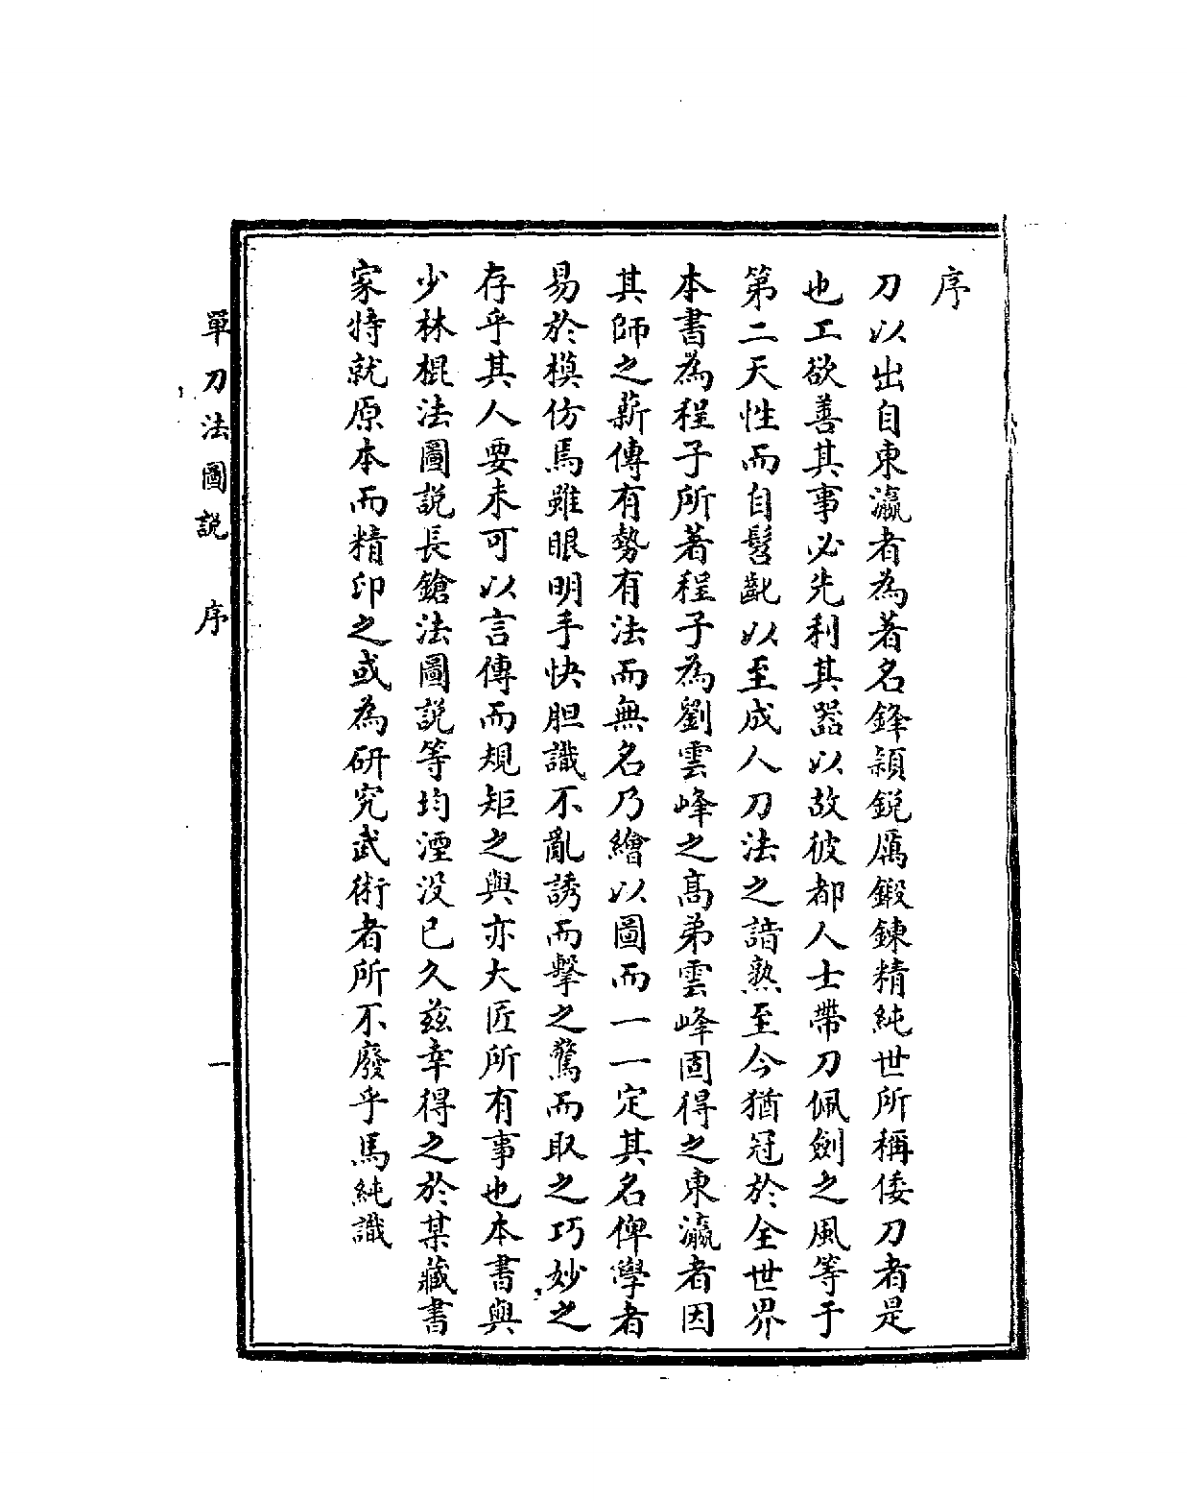 序
刀以出自東瀛者為著名鋒穎銳厲鍛鍊精純世所稱倭刀者是
也工欲善其事必先利其器以故彼都人士帶刀佩劍之風等于
第二天性而自髫齔以至成人刀法之諳熟至今猶冠於全世界
本書為程子所著程子為劉雲峰之高弟雲峰固得之東瀛者因
其師之薪傳有勢有法而無名乃繪以圖而一一定其名俾學者
易於模仿焉雖眼明手快胆識不亂誘而擊之驚而取之巧妙之
存乎其人要未可以言傳而規矩之與亦大匠所有事也本書與
少林棍法圖說長鎗法圖說等均湮没已久茲幸得之於某藏書
家特就原本而精印之或為研究武術者所不廢乎馬純識
單刀法圖說 序 一